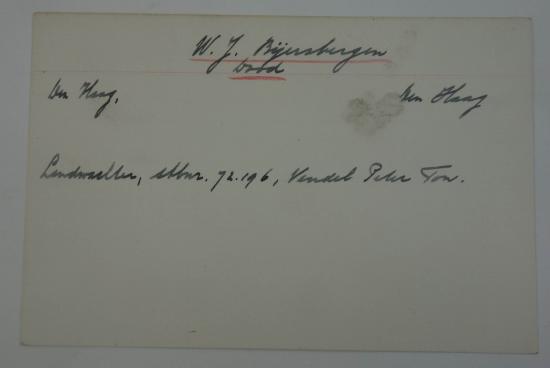 W. J. Bijersbergen
Dood
Den Haag, Den Haag
Landwachter, stbnr. 72.196, Vendel Peter Ton.